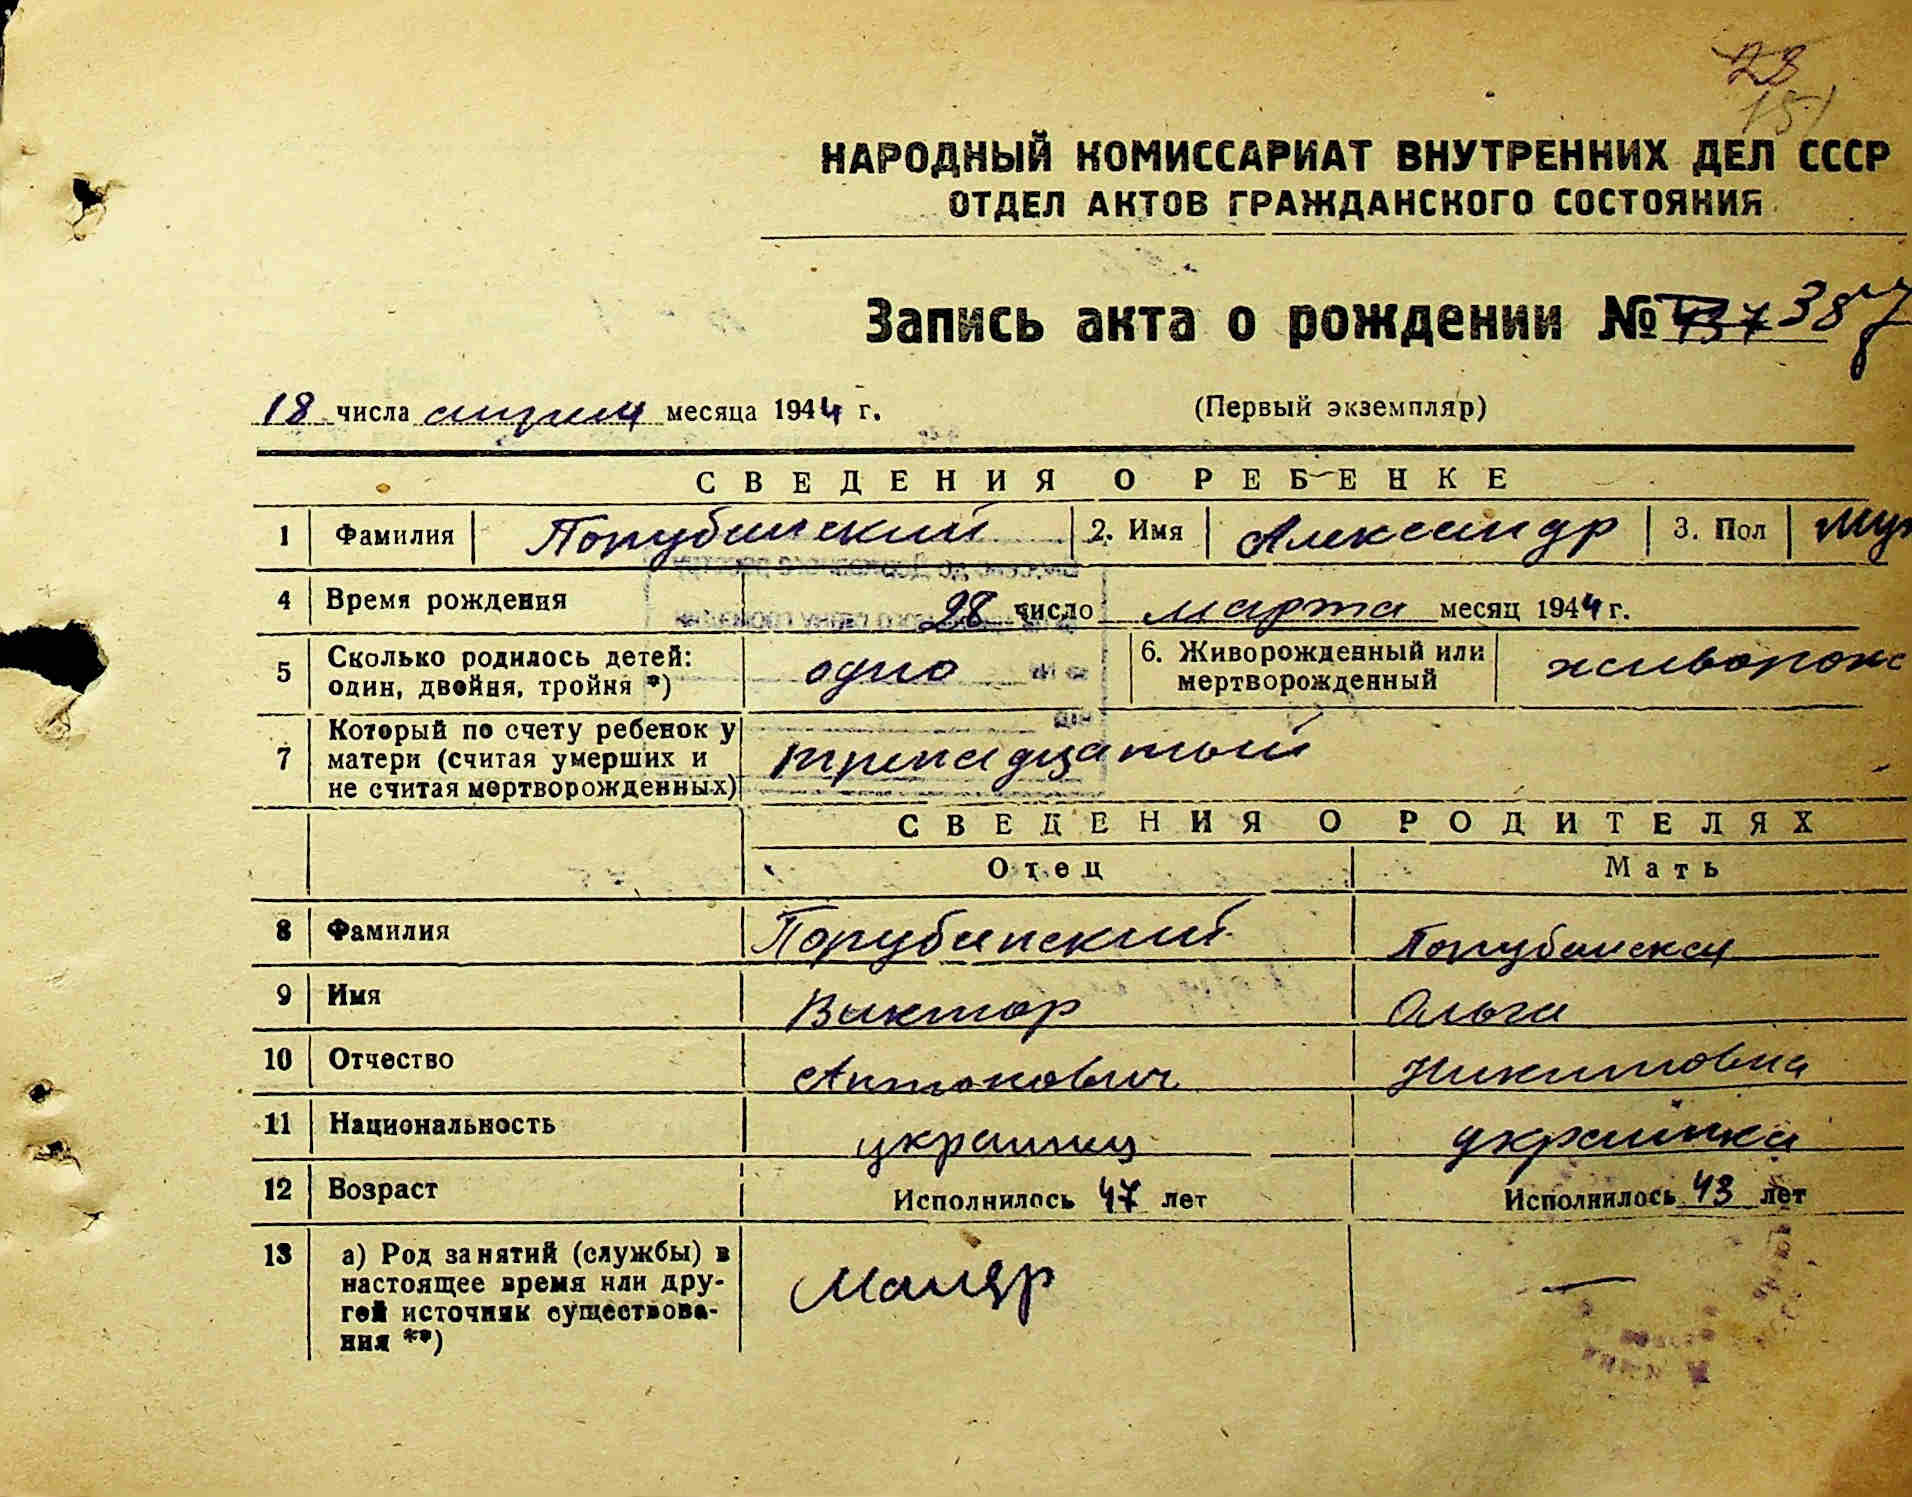 28
151
НАРОДНЫЙ КОМИССАРИАТ ВНУТРЕННИХ ДЕЛ СССР
ОТДЕЛ АКТОВ ГРАЖДАНСКОГО СОСТОЯНИЯ
Запись акта о рождении № 387
18 числа апреля месяца 1944 г. (Первый экземпляр)
СВЕДЕНИЯ О РЕБЕНКЕ
1 Фамилия Порубинский 2. Имя Александр 3. Пол Муж
4 Время рождения 28 число марта месяц 1944 г.
5 Сколько родилось детей: один, двойня, тройня *) одно 6. Живорожденный или мертворожденный живорожд
7 Который по счету ребенок у матери (считая умерших и не считая мертворожденных) тринадцатый
СВЕДЕНИЯ О РОДИТЕЛЯХ
Отец Мать
8 Фамилия Порубинский Порубинская
9 Имя Виктор Ольга
10 Отчество Антонович Никитовна
11 Национальность украинец украинка
12 Возраст Исполнилось 47 лет Исполнилось 43 лет
13 а) Род занятий (службы) в
настоящее время или дру-
гой источник существова-
ния **) Маляр —